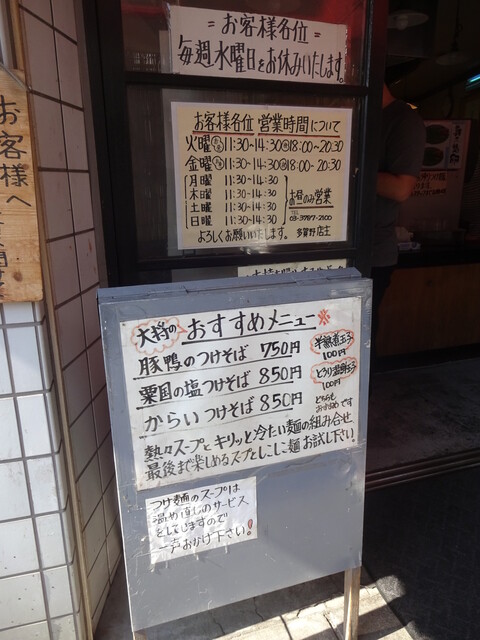 =お客様各位=
毎週水曜日をお休みいたします。
お客様各位 営業時間について
火曜 11:30~14:30 18:00~20:30
金曜 11:30~14:30 18:00~20:30
月曜 11:30-14:30
木曜 11:30-14:30
土曜 11:30-14:30
日曜 11:30-14:30
お昼のみ営業
TEL
03-3787-2100
よろしくお願いいたします。 多賀野店主
お客様へ
大将の おすすめメニュー※
豚鴨のつけそば 750円
粟国の塩つけそば 850円
からいつけそば 850円
半熟煮玉子
100円
とろり温泉玉子
100円
どちらも
おすすめです
熱々スープとキリッと冷たい麺の組み合せ
最後まで楽しめるスープとしこしこ麺 お試し下さい。
つけ麺のスープは
温め直しのサービス
をしてしますので
一声おかけ下さい!